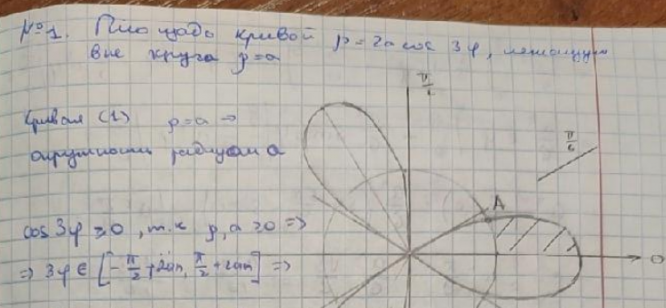 №1. Площадь кривой ρ = 2a cos 3φ, лежащую
вне круга ρ=a
π/2
Кривая (1) ρ=a →
окружность радиусом a
π/6
A
cos 3φ ≥ 0, т.к ρ, a ≥ 0 ⇒
⇒ 3φ ∈ [-π/2 + 2πn, π/2 + 2πn] ⇒
0